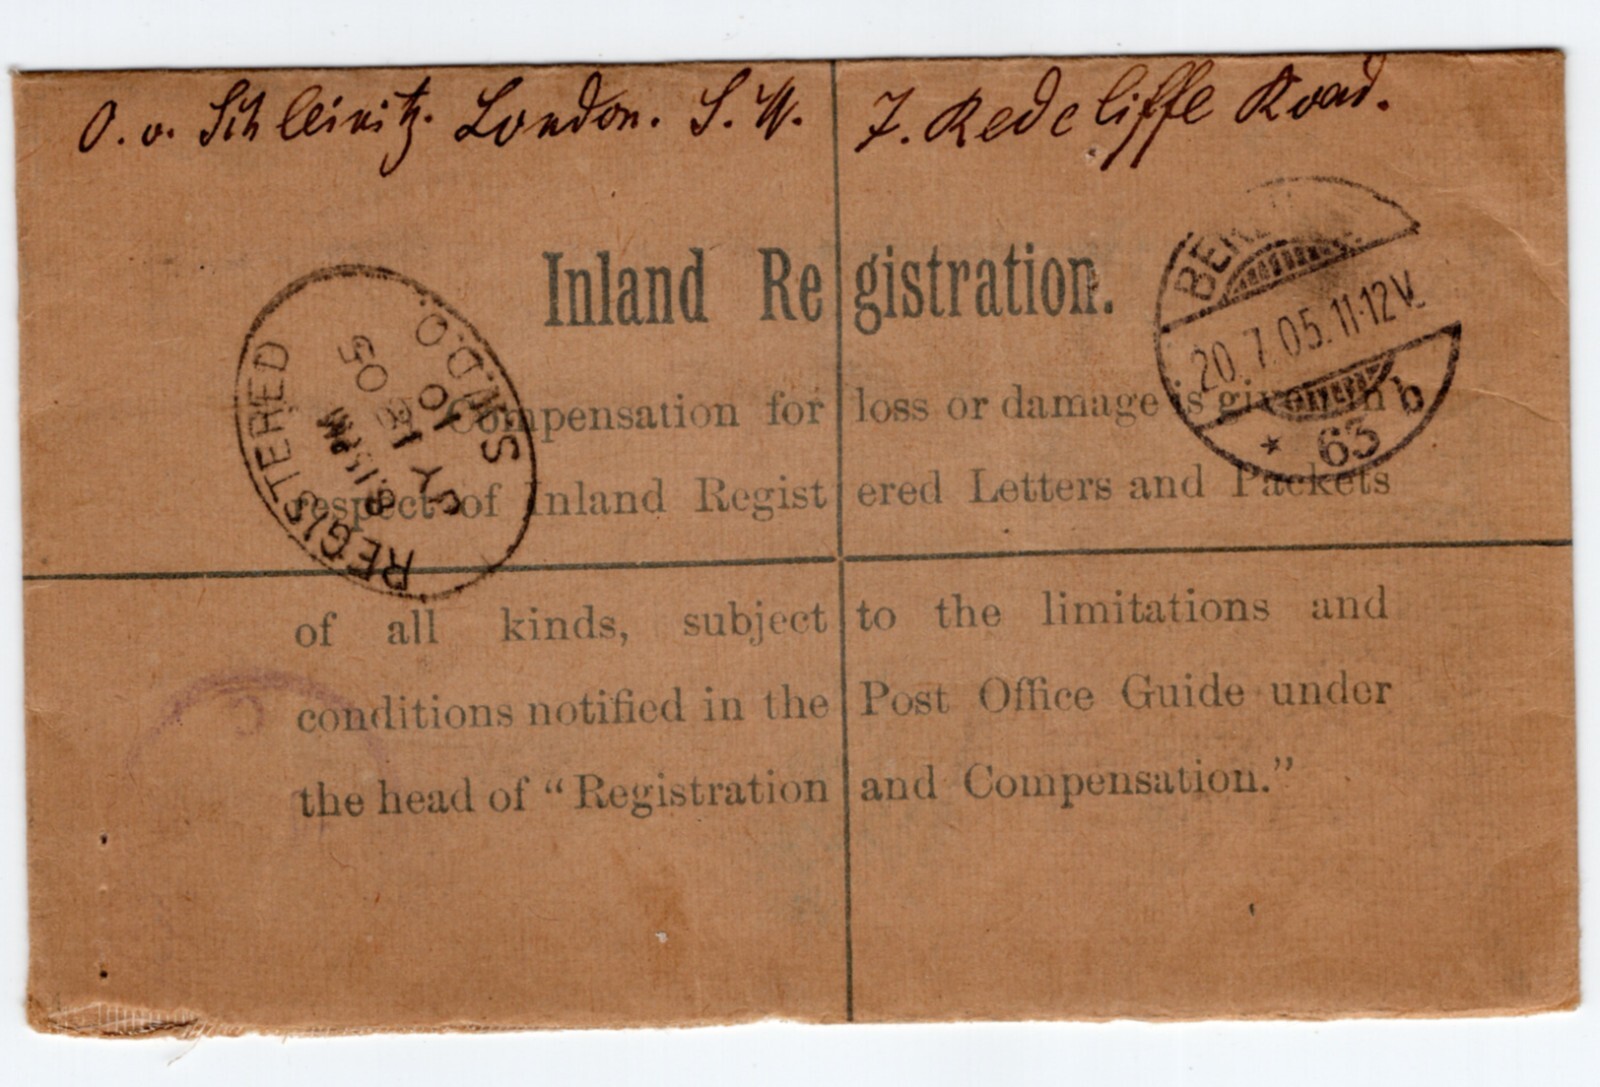 O. v. Schleinitz. London. S. W. 7. Redcliffe Road.
Inland Registration.
Compensation for loss or damage is given in
respect of Inland Registered Letters and Packets
of all kinds, subject to the limitations and
conditions notified in the Post Office Guide under
the head of “Registration and Compensation.”
REGISTERED
S.W.D.O.
10
JY
05
20.7.05.11-12V.
* 63 b